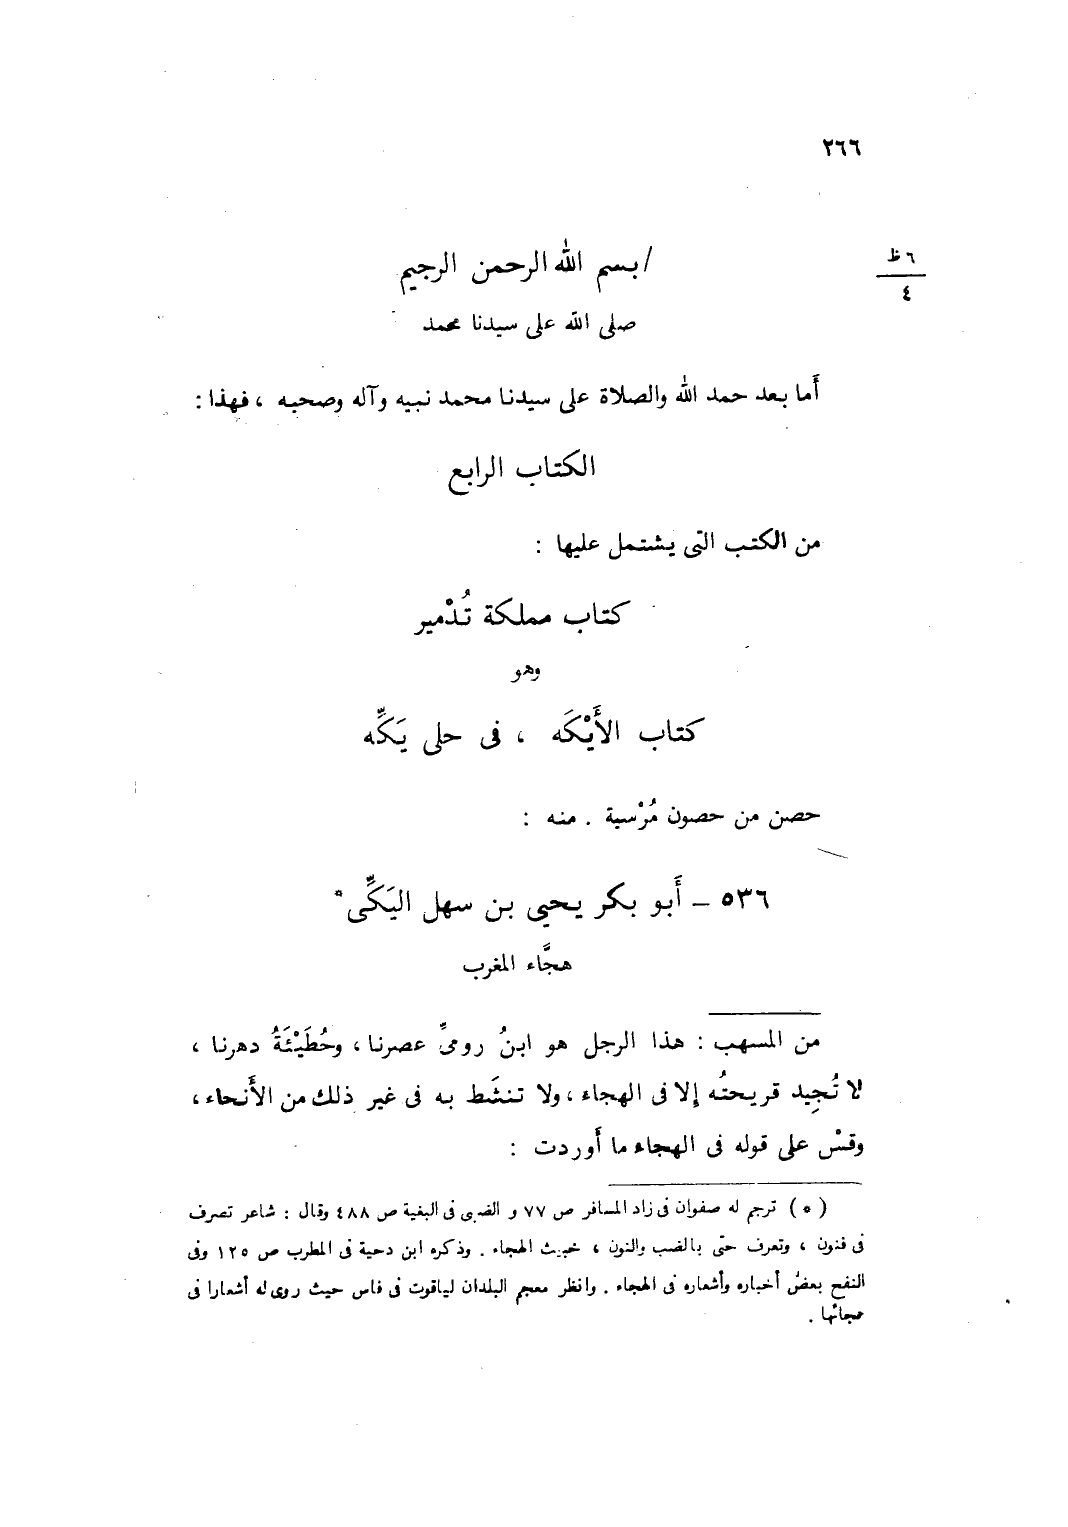 ٢٦٦
٦ ظ
٤
/ بسم الله الرحمن الرحيم
صلى الله على سيدنا محمد
أما بعد حمد الله والصلاة على سيدنا محمد نبيه وآله وصحبه ، فهذا :
الكتاب الرابع
من الكتب التى يشتمل عليها :
كتاب مملكة تُدْمير
وهو
كتاب الأَيْكَه ، فى حلى يَكِّه
حصن من حصون مُرْسية . منه :
٥٣٦ – أَبو بكر يحيى بن سهل اليَكِّى*
هجَّاء المغرب
من المسهب : هذا الرجل هو ابنُ رومىِّ عصرنا ، وحُطَيْئَةُ دهرنا ،
لا تُجِيد قريحتُه إلا فى الهجاء ، ولا تنشَط به فى غير ذلك من الأَنحاء ،
وقسْ على قوله فى الهجاء ما أَوردت :
(*) ترجم له صفوان فى زاد المسافر ص ٧٧ و الضبى فى البغية ص ٤٨٨ وقال : شاعر تصرف
فى فنون ، وتعرف حتى بالضب والنون ، خبيث الهجاء . وذكره ابن دحية فى المطرب ص ١٢٥ وفى
النفح بعض أخباره وأشعاره فى الهجاء . وانظر معجم البلدان لياقوت فى فاس حيث روى له أشعارا فى
هجائها .